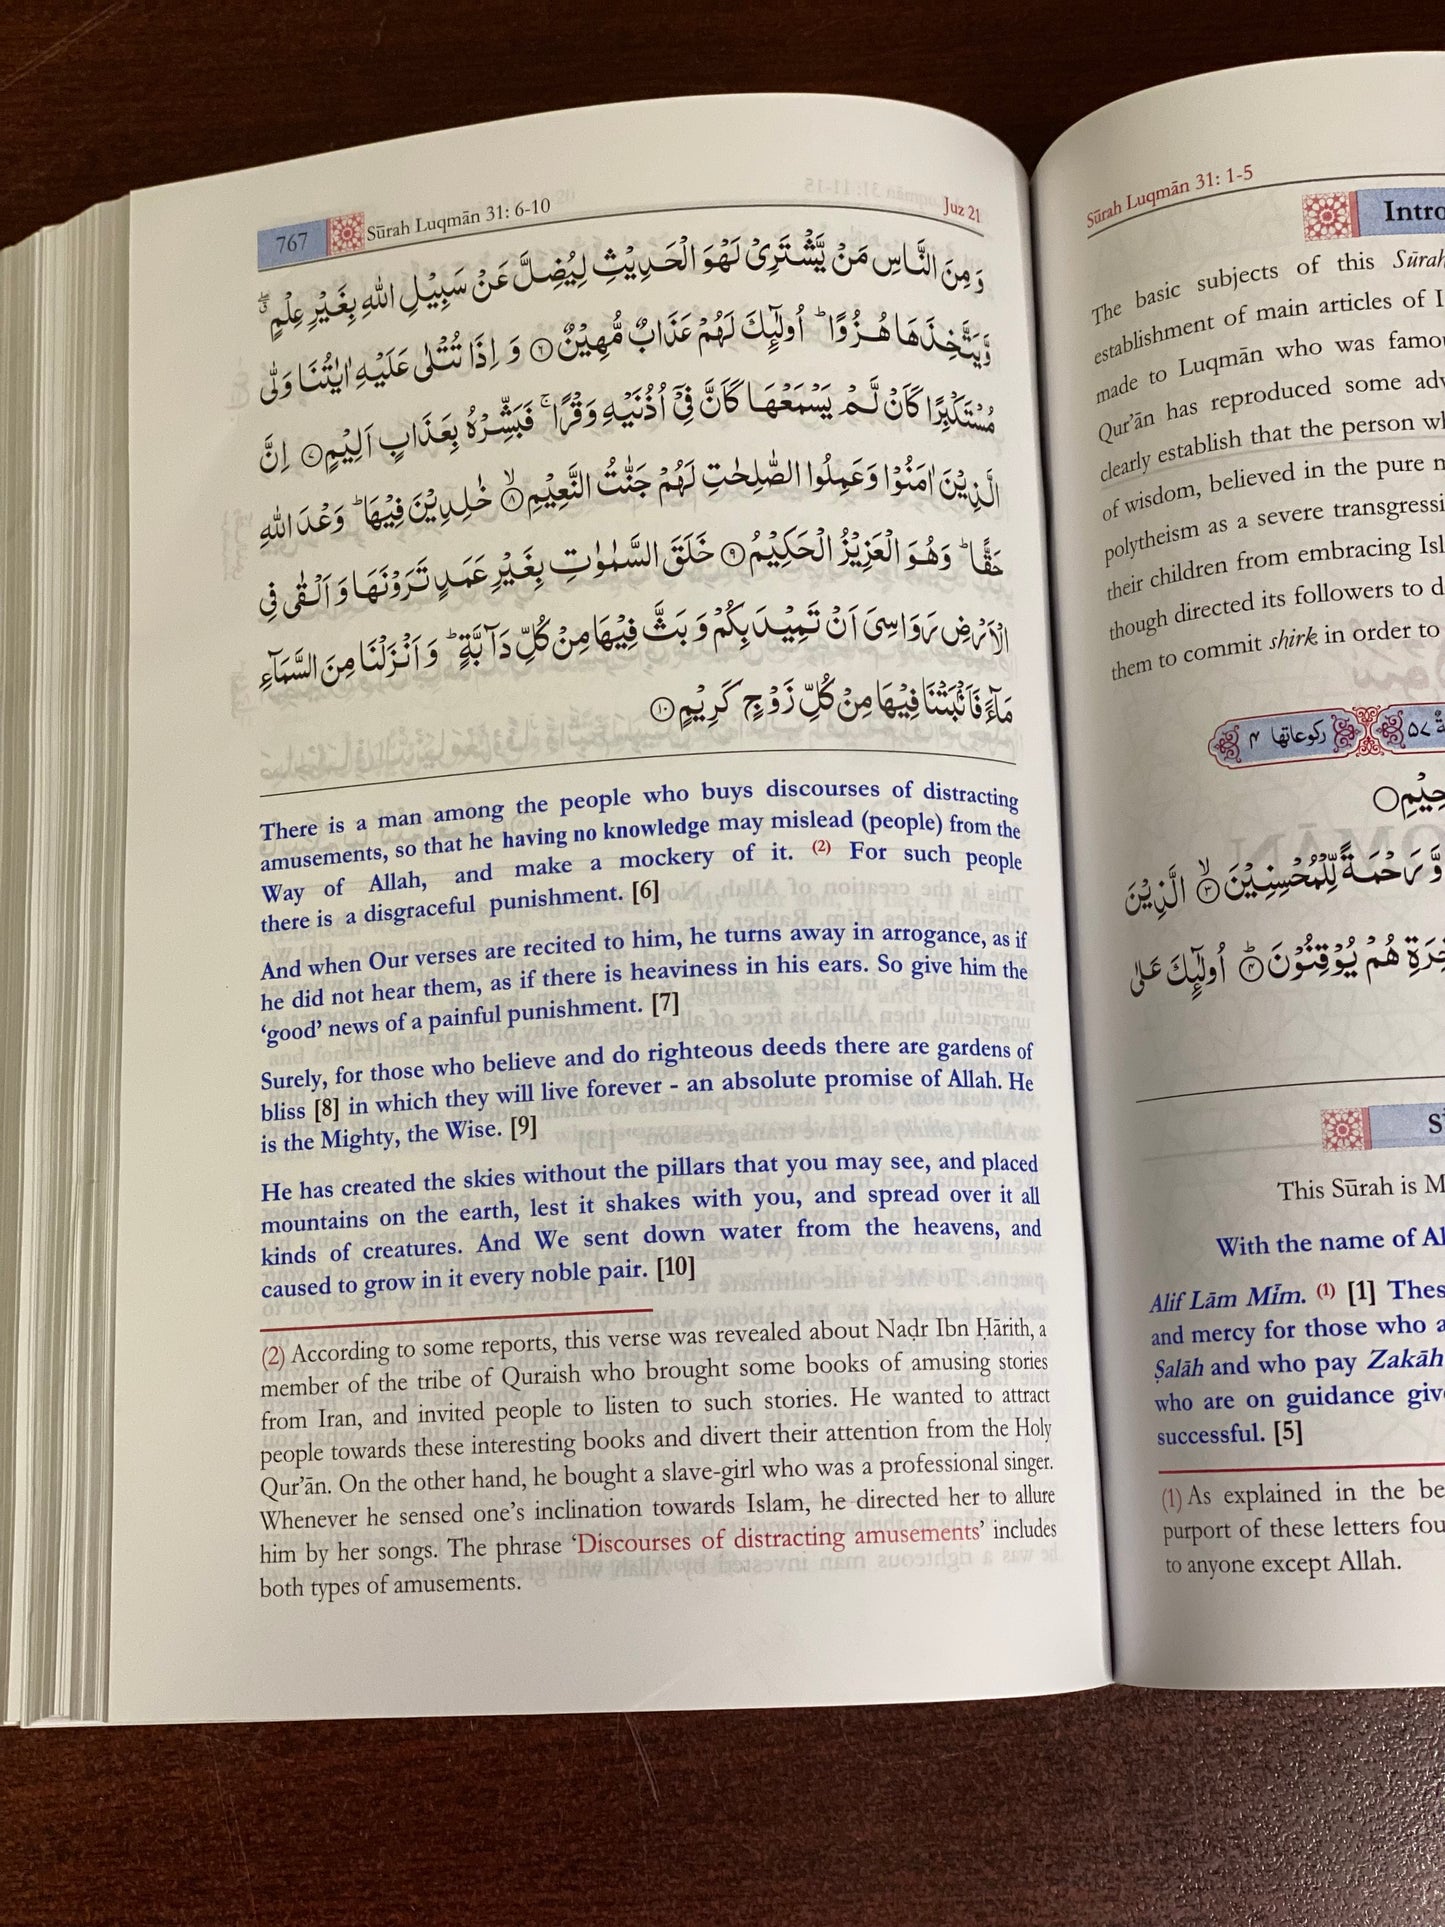 767 Sūrah Luqmān 31: 6-10 Juz 21
وَمِنَ النَّاسِ مَنْ يَّشْتَرِىْ لَهْوَ الْحَدِيْثِ لِيُضِلَّ عَنْ سَبِيْلِ اللهِ بِغَيْرِ عِلْمٍ ۖ
وَّيَتَّخِذَهَا هُزُوًا ؕ اُولٰٓئِكَ لَهُمْ عَذَابٌ مُّهِيْنٌ ۝۶ وَاِذَا تُتْلٰى عَلَيْهِ اٰيٰتُنَا وَلّٰى
مُسْتَكْبِرًا كَاَنْ لَّمْ يَسْمَعْهَا كَاَنَّ فِىْٓ اُذُنَيْهِ وَقْرًا ۚ فَبَشِّرْهُ بِعَذَابٍ اَلِيْمٍ ۝۷ اِنَّ
الَّذِيْنَ اٰمَنُوْا وَعَمِلُوا الصّٰلِحٰتِ لَهُمْ جَنّٰتُ النَّعِيْمِ ۝۸ۙ خٰلِدِيْنَ فِيْهَا ؕ وَعْدَ اللهِ
حَقًّا ؕ وَهُوَ الْعَزِيْزُ الْحَكِيْمُ ۝۹ خَلَقَ السَّمٰوٰتِ بِغَيْرِ عَمَدٍ تَرَوْنَهَا وَاَلْقٰى فِى
الْاَرْضِ رَوَاسِىَ اَنْ تَمِيْدَ بِكُمْ وَبَثَّ فِيْهَا مِنْ كُلِّ دَآبَّةٍ ؕ وَاَنْزَلْنَا مِنَ السَّمَآءِ
مَآءً فَاَنْۢبَتْنَا فِيْهَا مِنْ كُلِّ زَوْجٍ كَرِيْمٍ ۝۱۰
There is a man among the people who buys discourses of distracting
amusements, so that he having no knowledge may mislead (people) from the
Way of Allah, and make a mockery of it. (2) For such people
there is a disgraceful punishment. [6]
And when Our verses are recited to him, he turns away in arrogance, as if
he did not hear them, as if there is heaviness in his ears. So give him the
‘good’ news of a painful punishment. [7]
Surely, for those who believe and do righteous deeds there are gardens of
bliss [8] in which they will live forever - an absolute promise of Allah. He
is the Mighty, the Wise. [9]
He has created the skies without the pillars that you may see, and placed
mountains on the earth, lest it shakes with you, and spread over it all
kinds of creatures. And We sent down water from the heavens, and
caused to grow in it every noble pair. [10]
(2) According to some reports, this verse was revealed about Naḍr Ibn Ḥārith, a
member of the tribe of Quraish who brought some books of amusing stories
from Iran, and invited people to listen to such stories. He wanted to attract
people towards these interesting books and divert their attention from the Holy
Qur’ān. On the other hand, he bought a slave-girl who was a professional singer.
Whenever he sensed one’s inclination towards Islam, he directed her to allure
him by her songs. The phrase ‘Discourses of distracting amusements’ includes
both types of amusements.
Sūrah Luqmān 31: 1-5
Intro
The basic subjects of this Sūrah
establishment of main articles of I
made to Luqmān who was famou
Qur’ān has reproduced some adv
clearly establish that the person wh
of wisdom, believed in the pure m
polytheism as a severe transgressi
their children from embracing Isl
though directed its followers to d
them to commit shirk in order to
۵۷ رکوعاتها ۴
حِيْمِ
وَّرَحْمَةً لِّلْمُحْسِنِيْنَ ۝۳ۙ الَّذِيْنَ
خِرَةِ هُمْ يُوْقِنُوْنَ ۝۴ؕ اُولٰٓئِكَ عَلٰى
S
This Sūrah is M
With the name of Al
Alif Lām Mīm. (1) [1] Thes
and mercy for those who a
Ṣalāh and who pay Zakāh
who are on guidance giv
successful. [5]
(1) As explained in the be
purport of these letters fou
to anyone except Allah.